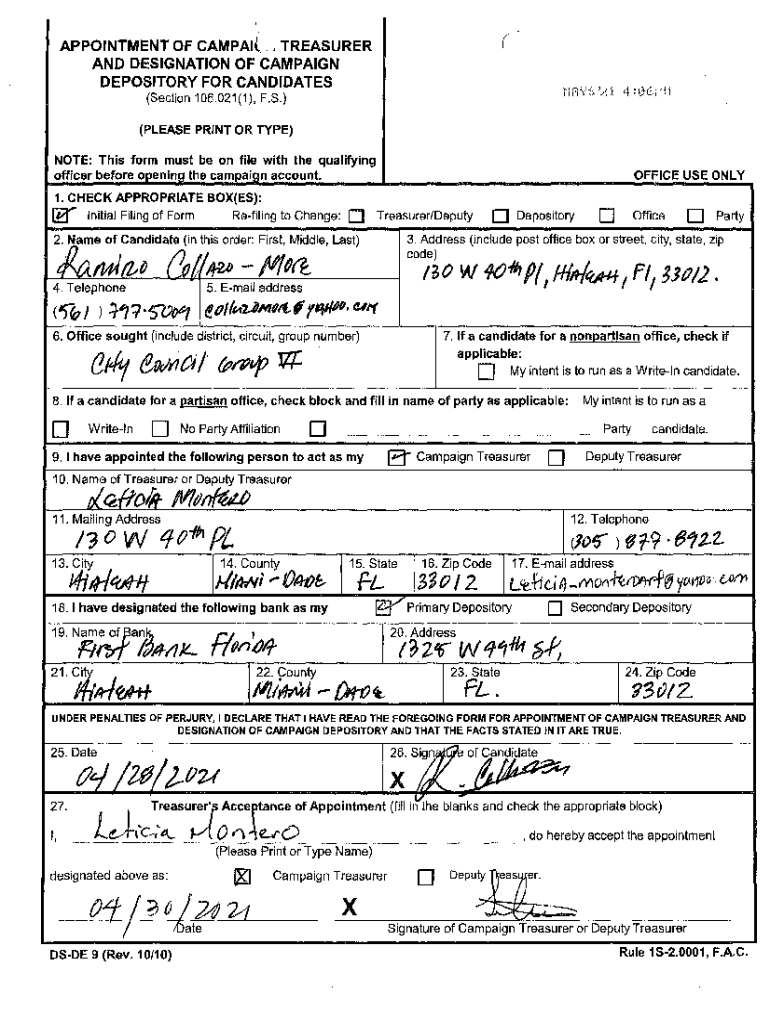 APPOINTMENT OF CAMPAI TREASURER
AND DESIGNATION OF CAMPAIGN
DEPOSITORY FOR CANDIDATES
(Section 106.021(1), F.S.)
(PLEASE PRINT OR TYPE)
NOTE: This form must be on file with the qualifying
officer before opening the campaign account.
OFFICE USE ONLY
1. CHECK APPROPRIATE BOX(ES):
Initial Filing of Form Re-filing to Change: Treasurer/Deputy Depository Office Party
2. Name of Candidate (in this order: First, Middle, Last)
Ramiro Collazo - More
3. Address (include post office box or street, city, state, zip
code)
130 W 40th Pl, Hialeah, Fl, 33012.
4. Telephone
(561) 797-5009
5. E-mail address
collazomore@yahoo.com
6. Office sought (include district, circuit, group number)
City Council Group VI
7. If a candidate for a nonpartisan office, check if
applicable:
My intent is to run as a Write-In candidate.
8. If a candidate for a partisan office, check block and fill in name of party as applicable: My intent is to run as a
Write-In No Party Affiliation Party candidate.
9. I have appointed the following person to act as my Campaign Treasurer Deputy Treasurer
10. Name of Treasurer or Deputy Treasurer
Leticia Montero
11. Mailing Address
130 W 40th PL
12. Telephone
(305) 879-8922
13. City
Hialeah
14. County
Miami-Dade
15. State
FL
16. Zip Code
33012
17. E-mail address
Leticia_monteroart@yahoo.com
18. I have designated the following bank as my Primary Depository Secondary Depository
19. Name of Bank
First Bank Florida
20. Address
1325 W 49th St,
21. City
Hialeah
22. County
Miami - Dade
23. State
FL.
24. Zip Code
33012
UNDER PENALTIES OF PERJURY, I DECLARE THAT I HAVE READ THE FOREGOING FORM FOR APPOINTMENT OF CAMPAIGN TREASURER AND
DESIGNATION OF CAMPAIGN DEPOSITORY AND THAT THE FACTS STATED IN IT ARE TRUE.
25. Date
04/28/2021
26. Signature of Candidate
X
27. Treasurer's Acceptance of Appointment (fill in the blanks and check the appropriate block)
I, Leticia Montero , do hereby accept the appointment
(Please Print or Type Name)
designated above as: Campaign Treasurer Deputy Treasurer.
04/30/2021 X
Date Signature of Campaign Treasurer or Deputy Treasurer
DS-DE 9 (Rev. 10/10) Rule 1S-2.0001, F.A.C.